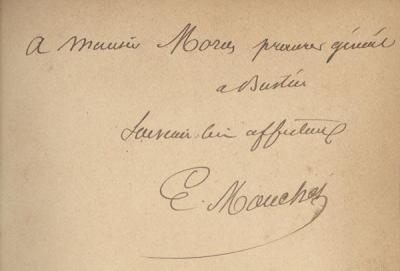 A Monsieur Moras procureur général
a Bastia
Souvenir bien affectueux
E. Mouchez